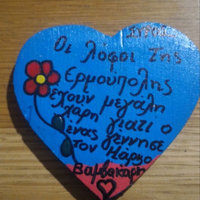 Οι λόφοι της
Ερμούπολης
έχουν μεγάλη
χάρη γιατί ο
ένας γέννησε
τον Μάρκο
Βαμβακάρη